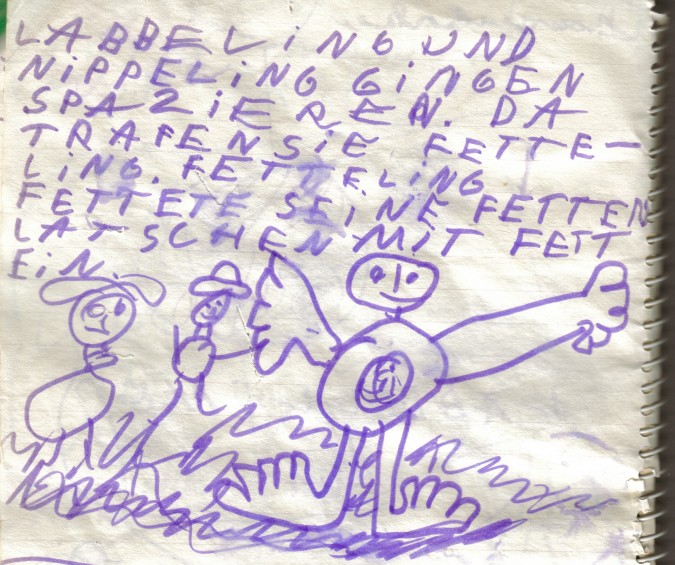 LABBELiNG UND
NiPPELiNG GiNGEN
SPAZiEREN. DA
TRAFEN SiE FETTE-
LiNG. FETTELiNG
FETTETE SEiNE FETTEN
LATSCHEN MiT FETT
EiN.